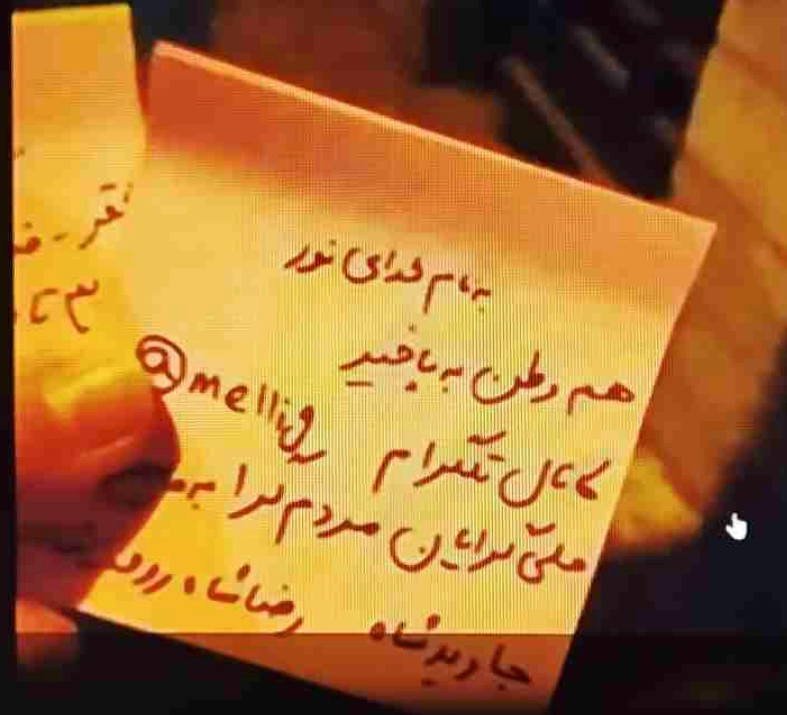 به نام خدای نور
هم وطن به پا خیز
کانال تلگرام @mellig
ملی گرایان مردم گرا به
جاوید شاه رضا شاه
قر
۳ تا